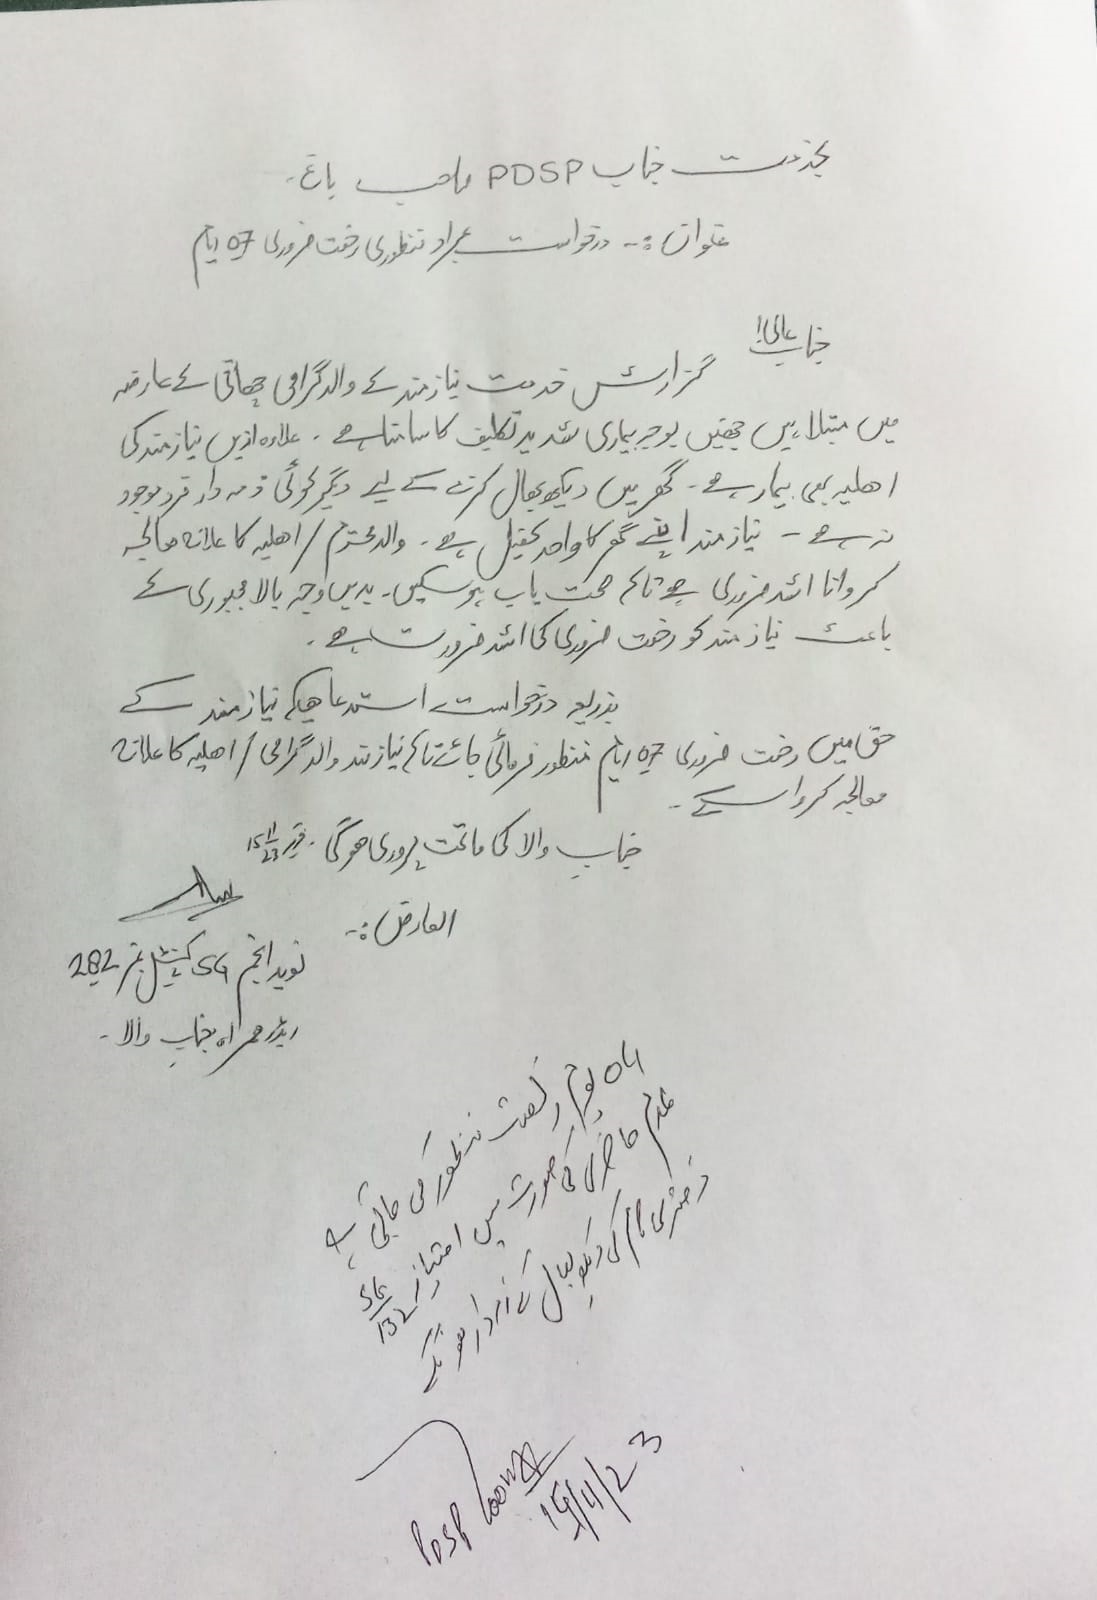 بخدمت جناب PDSP صاحب باغ۔
عنوان:۔ درخواست بمراد منظوری رخصت ضروری 07 ایام
جناب عالی!
گزارش خدمت نیازمند کے والد گرامی چھاتی کے عارضہ
میں مبتلا ہیں جنھیں بوجہ بیماری شدید تکلیف کا سامنا ہے ۔ علاوہ ازیں نیازمند کی
اھلیہ بھی بیمار ہے ۔ گھر میں دیکھ بھال کرنے کے لیے دیگر کوئی ذمہ دار فرد موجود
نہ ہے ۔ نیازمند اپنے گھر کا واحد کفیل ہے ۔ والد محترم / اھلیہ کا علاج معالجہ
کروانا اشد ضروری ہے تاکہ صحت یاب ہوسکیں ۔ بدیں وجہ بالا مجبوری کے
باعث نیازمند کو رخصت ضروری کی اشد ضرورت ہے ۔
بذریعہ درخواست استدعا ھیکہ نیازمند کے
حق میں رخصت ضروری 07 ایام منظور فرمائی جائے تاکہ نیازمند والد گرامی / اھلیہ کا علاج
معالجہ کروا سکے ۔
جناب والا کی ماتحت پروری ھوگی ۔ 15/11/23
العارض:۔
نوید انجم SG کنسٹیبل نمبر 282
ریڈر ھمراہ جناب والا ۔
04 یوم رخصت منظور کی جاتی ہے
عدم حاضری کی صورت میں امتیاز SG/132
دفتری کام کی دیکھ بھال کے ذمہ دار ھونگے
PDSP
15/11/23